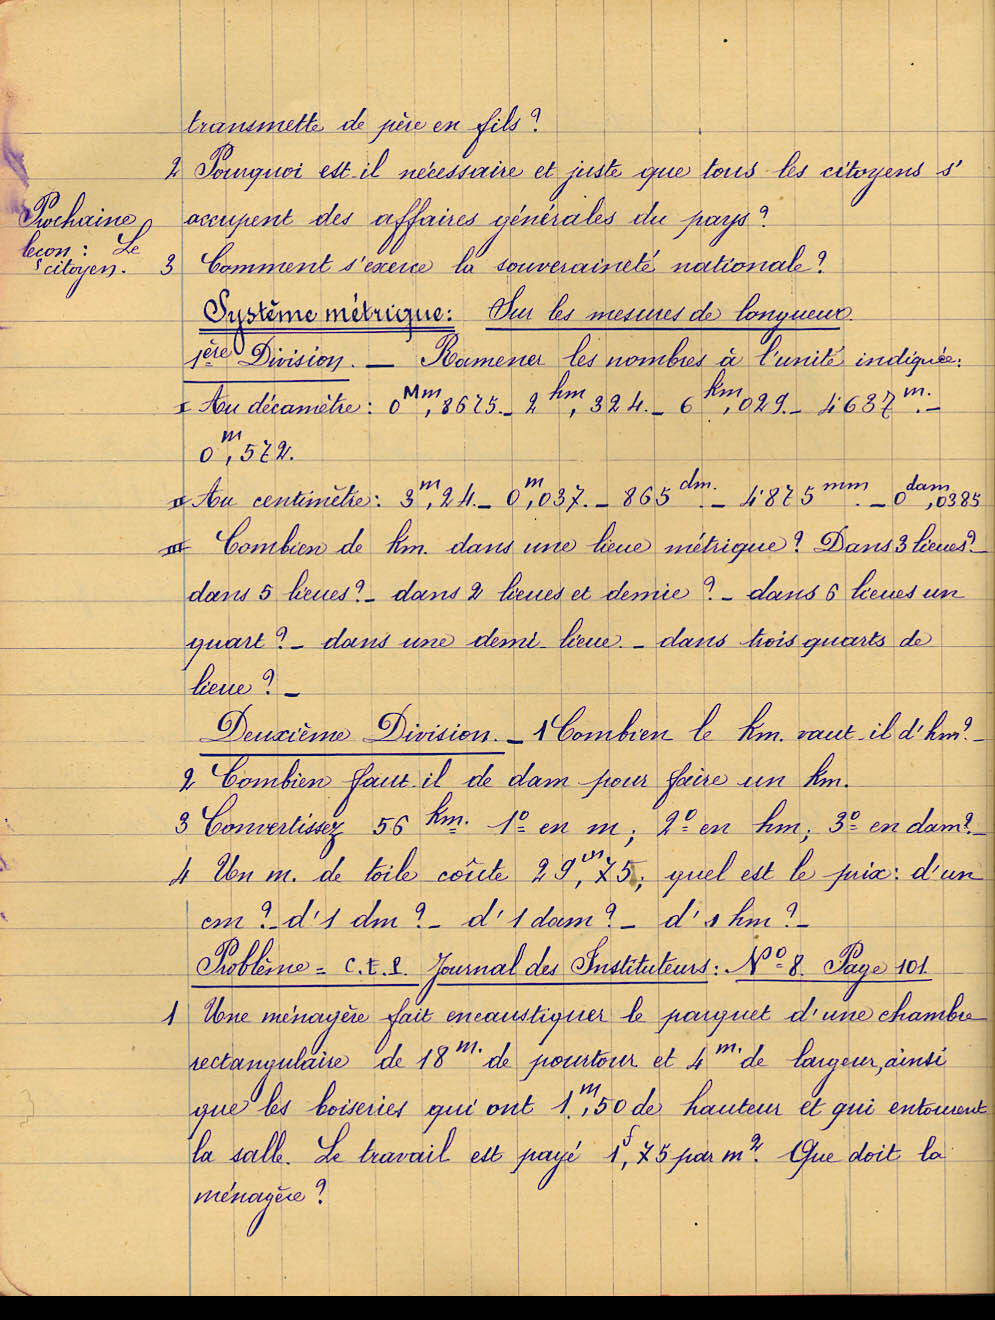 transmette de père en fils ?
2 Pourquoi est-il nécessaire et juste que tous les citoyens s'
occupent des affaires générales du pays ?
Prochaine
leçon : Le
citoyen.
3 Comment s'exerce la souveraineté nationale ?
Système métrique : Sur les mesures de longueur.
1ère Division. — Ramener les nombres à l'unité indiquée :
I Au décamètre : 0 Mm, 8675 – 2 hm, 324. – 6 km, 029 – 4637 m. –
0 m, 572.
II Au centimètre : 3 m, 24 – 0 m, 037. – 865 dm. – 4875 mm. – 0 dam, 0385
III Combien de km. dans une lieue métrique ? Dans 3 lieues ? –
dans 5 lieues ? – dans 2 lieues et demie ? – dans 6 lieues un
quart ? – dans une demi-lieue. – dans trois quarts de
lieue ? –
Deuxième Division. – 1 Combien le km. vaut-il d'hm ? –
2 Combien faut-il de dam pour faire un km.
3 Convertissez 56 km. 1º en m ; 2º en hm ; 3º en dam ? –
4 Un m. de toile coûte 29 m, 75 ; quel est le prix : d'un
cm ? – d'1 dm ? – d'1 dam ? – d'1 hm ? –
Problème = C.E.P. Journal des Instituteurs : Nº 8. Page 101
1 Une ménagère fait encaustiquer le parquet d'une chambre
rectangulaire de 18 m. de pourtour et 4 m. de largeur, ainsi
que les boiseries qui ont 1 m, 50 de hauteur et qui entourent
la salle. Le travail est payé 1 f, 75 par m². Que doit la
ménagère ?